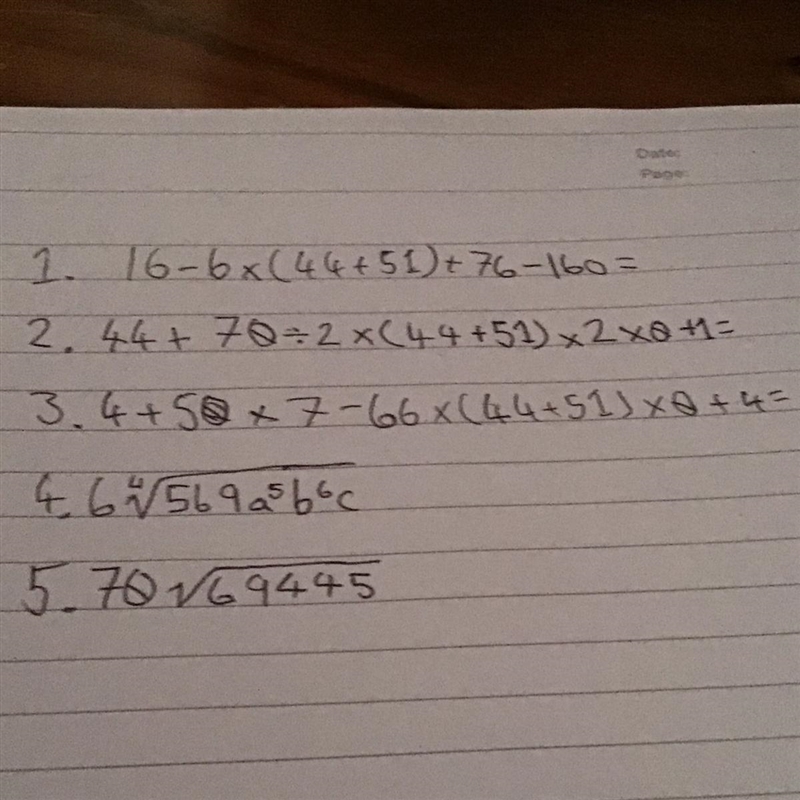 Date:
Page:
1. 16-6×(44+51)+76-160=
2. 44+7θ÷2×(44+51)×2×θ+1=
3. 4+5θ×7-66×(44+51)×θ+4=
4. 6∜569a⁵b⁶c
5. 7θ√69445